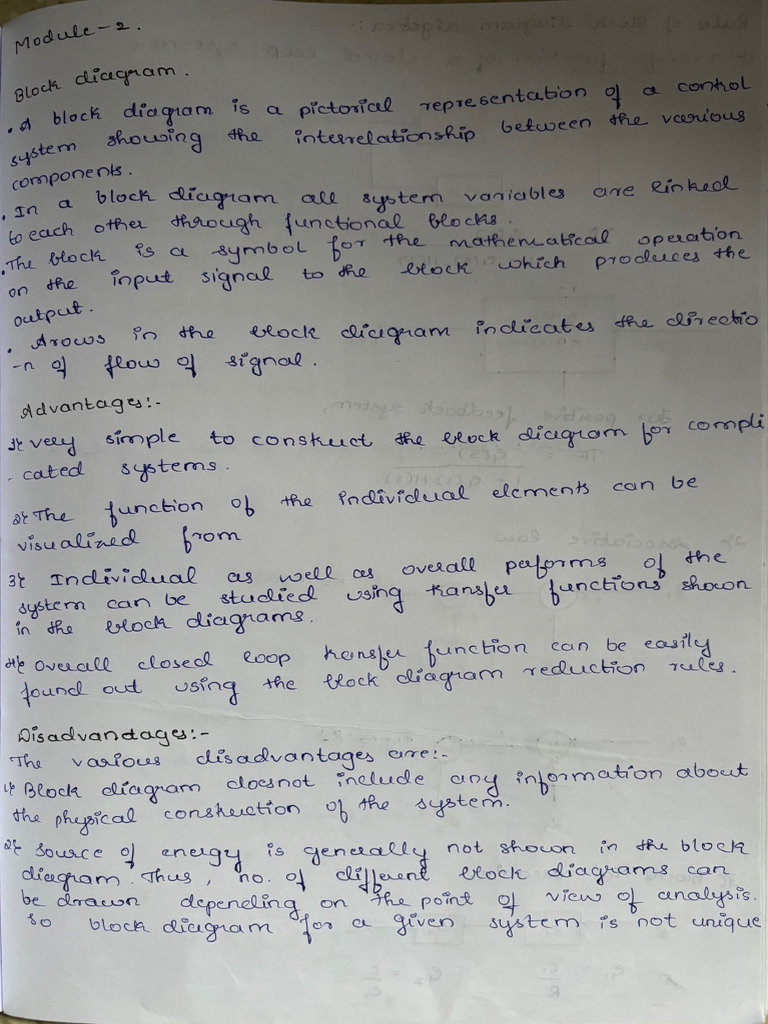 Module-2.
Block diagram.
• A block diagram is a pictorial representation of a control
system showing the interrelationship between the various
components.
• In a block diagram all system variables are linked
to each other through functional blocks.
• The block is a symbol for the mathematical operation
on the input signal to the block which produces the
output.
• Arows in the block diagram indicates the directio
-n of flow of signal.
Advantages:-
1) very simple to construct the block diagram for compli
-cated systems.
2) The function of the individual elements can be
visualized from
3) Individual as well as overall performs of the
system can be studied using transfer functions shown
in the block diagrams.
4) overall closed loop transfer function can be easily
found out using the block diagram reduction rules.
Disadvandages:-
The various disadvantages are:-
1) Block diagram doesnot include any information about
the physical construction of the system.
2) Source of energy is generally not shown in the block
diagram. Thus, no. of different block diagrams can
be drawn depending on the point of view of analysis.
So block diagram for a given system is not unique